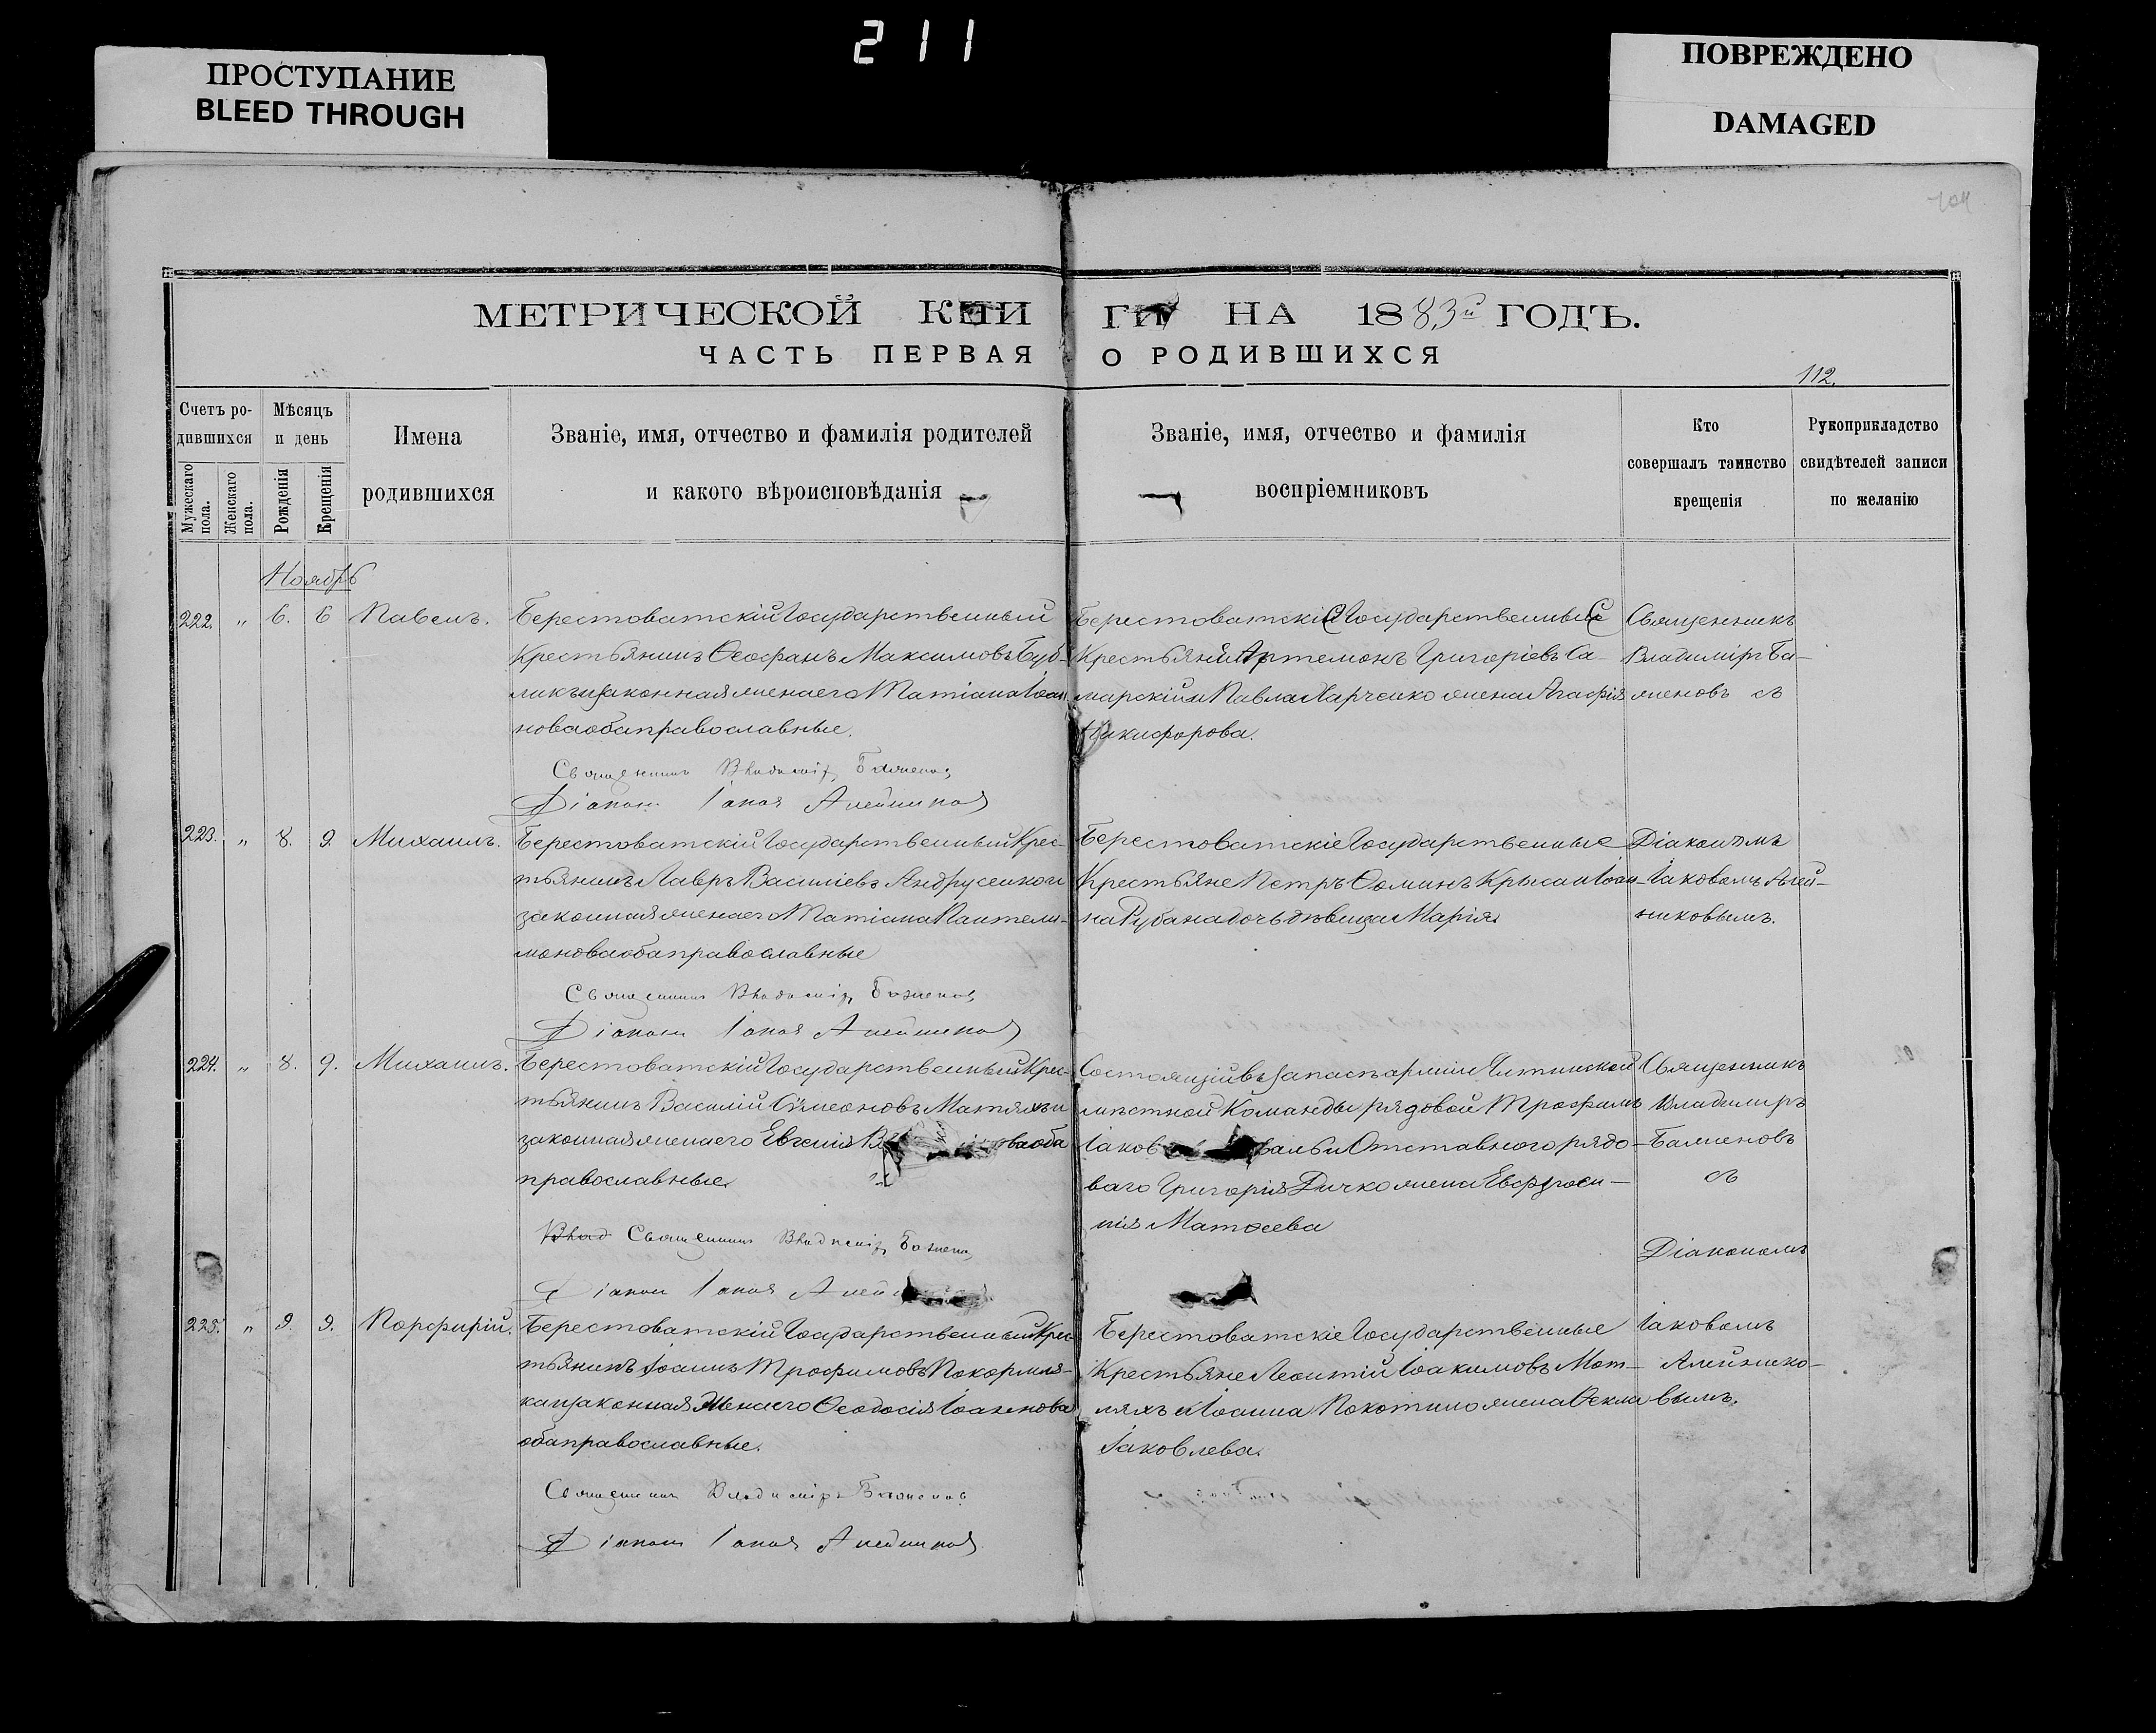 211
ПРОСТУПАНИЕ
BLEED THROUGH
ПОВРЕЖДЕНО
DAMAGED
МЕТРИЧЕСКОЙ КНИГИ НА 1883й ГОДЪ.
ЧАСТЬ ПЕРВАЯ О РОДИВШИХСЯ
112.
Счетъ ро-
дившихся
Мужескаго пола.
Женскаго пола.
Мѣсяцъ
и день
Рожденія
Крещенія
Имена
родившихся
Званіе, имя, отчество и фамилія родителей
и какого вѣроисповѣданія
Званіе, имя, отчество и фамилія
воспріемниковъ
Кто
совершалъ таинство
крещенія
Рукоприкладство
свидѣтелей записи
по желанію
Ноябрь
222. " 6. 6 Павелъ.
Берестоватскій Государственный
Крестьянинъ Ѳеофанъ Максимовъ Буб-
ликъ и законная жена его Татіана Іоан
нова оба православные.
Священникъ Владиміръ Баженовъ
Діаконъ Іаковъ Алейниковъ
Берестоватскіе Государственные
Крестьяне Артемонъ Григоріевъ Са-
марскій и Павла Харченко жена Агафія
Никифорова.
Священникъ
Владиміръ Ба-
женовъ съ
223. " 8. 9. Михаилъ.
Берестоватскій Государственный Крес-
тьянинъ Лавръ Василіевъ Андрусенко и
законная жена его Татіана Пантели-
монова оба православные
Священникъ Владиміръ Баженовъ
Діаконъ Іаковъ Алейниковъ
Берестоватскіе Государственные
Крестьяне Петръ Ѳоминъ Крыса и Іоан-
на Рубана дочь дѣвица Марія
Діакономъ
Іаковомъ Алей-
никовымъ.
224. " 8. 9. Михаилъ.
Берестоватскій Государственный Крес-
тьянинъ Василій Сѵмеоновъ Матяхъ и
законная жена его Евгенія ова оба
православные
Влад Священникъ Владиміръ Баженовъ
Діаконъ Іаковъ Алейн
Состоящій въ запасѣ арміи Читинской
мѣстной Команды рядовой Трофимъ
Іаков валь и Отставного рядо-
ваго Григорія Дичко жена Евфроси-
нія Матѳеева
Священникъ
Владимиръ
Баженовъ
съ
Діакономъ
225. " 9. 9. Порфирій.
Берестоватскій Государственный Крес-
тьянинъ Іоаннъ Трофимовъ Покормля-
ка и законная жена его Ѳеодосія Іоаннова
оба православные.
Священникъ Владиміръ Баженовъ
Діаконъ Іаковъ Алейниковъ
Берестоватскіе Государственные
Крестьяне Леонтій Іоакимовъ Мот-
ляхъ и Іоанна Покотило жена Ѳекла
Іаковлева.
Іаковомъ
Алейнико-
вымъ.